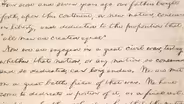 Four score and seven years ago our fathers brought
forth, upon this continent, a new nation, conceived
in liberty, and dedicated to the proposition that
"all men are created equal"
Now we are engaged in a great civil war, testing
whether that nation, or any nation so conceived,
and so dedicated, can long endure. We are met
on a great battle field of that war. We have
come to dedicate a portion of it, as a final rest